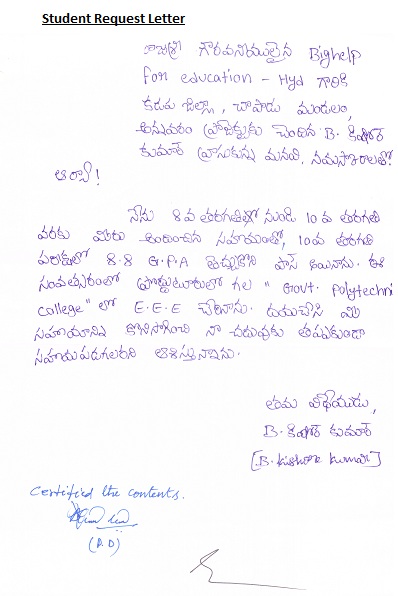 Student Request Letter
రాజశ్రీ గౌరవనీయులైన Bighelp
for education - Hyd గారికి
కడప జిల్లా, చాపాడు మండలం,
అన్నవరం ప్రాజెక్టుకు చెందిన B. కిషోర్
కుమార్ వ్రాసుకున్న మనవి. నమస్కారాలతో!
ఆర్యా!
నేను 8వ తరగతిలో నుండి 10వ తరగతి
వరకు మీరు అందించిన సహాయంతో, 10వ తరగతి
పరీక్షలో 8.8 G.P.A తెచ్చుకొని పాస్ అయినాను. ఈ
సంవత్సరంలో ప్రొద్దుటూరులో గల "Govt. Polytechni
College" లో E.E.E చేరినాను. దయచేసి మీ
సహాయాన్ని కొనసాగించి నా చదువుకు తప్పకుండా
సహాయపడగలరని ఆశిస్తున్నాను.
తమ విధేయుడు,
B. కిషోర్ కుమార్
[B. Kishore Kumar]
Certified the contents.
(P.D)